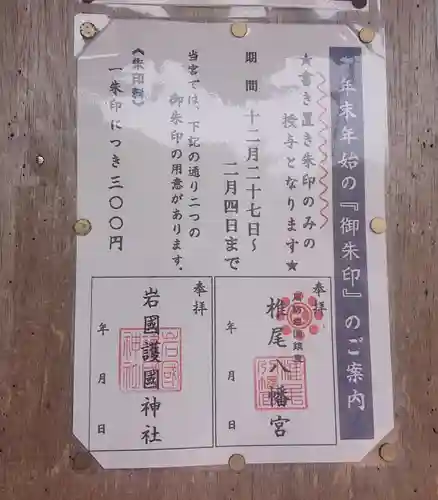 年末年始の『御朱印』のご案内
★書き置き朱印のみの
授与となります★
期間 十二月二十七日~
二月四日まで
当宮では、下記の通り二つの
御朱印の用意があります.
《朱印料》
一朱印につき三〇〇円
奉拝
椎尾八幡宮
年 月 日
奉拝
岩國護國神社
年 月 日